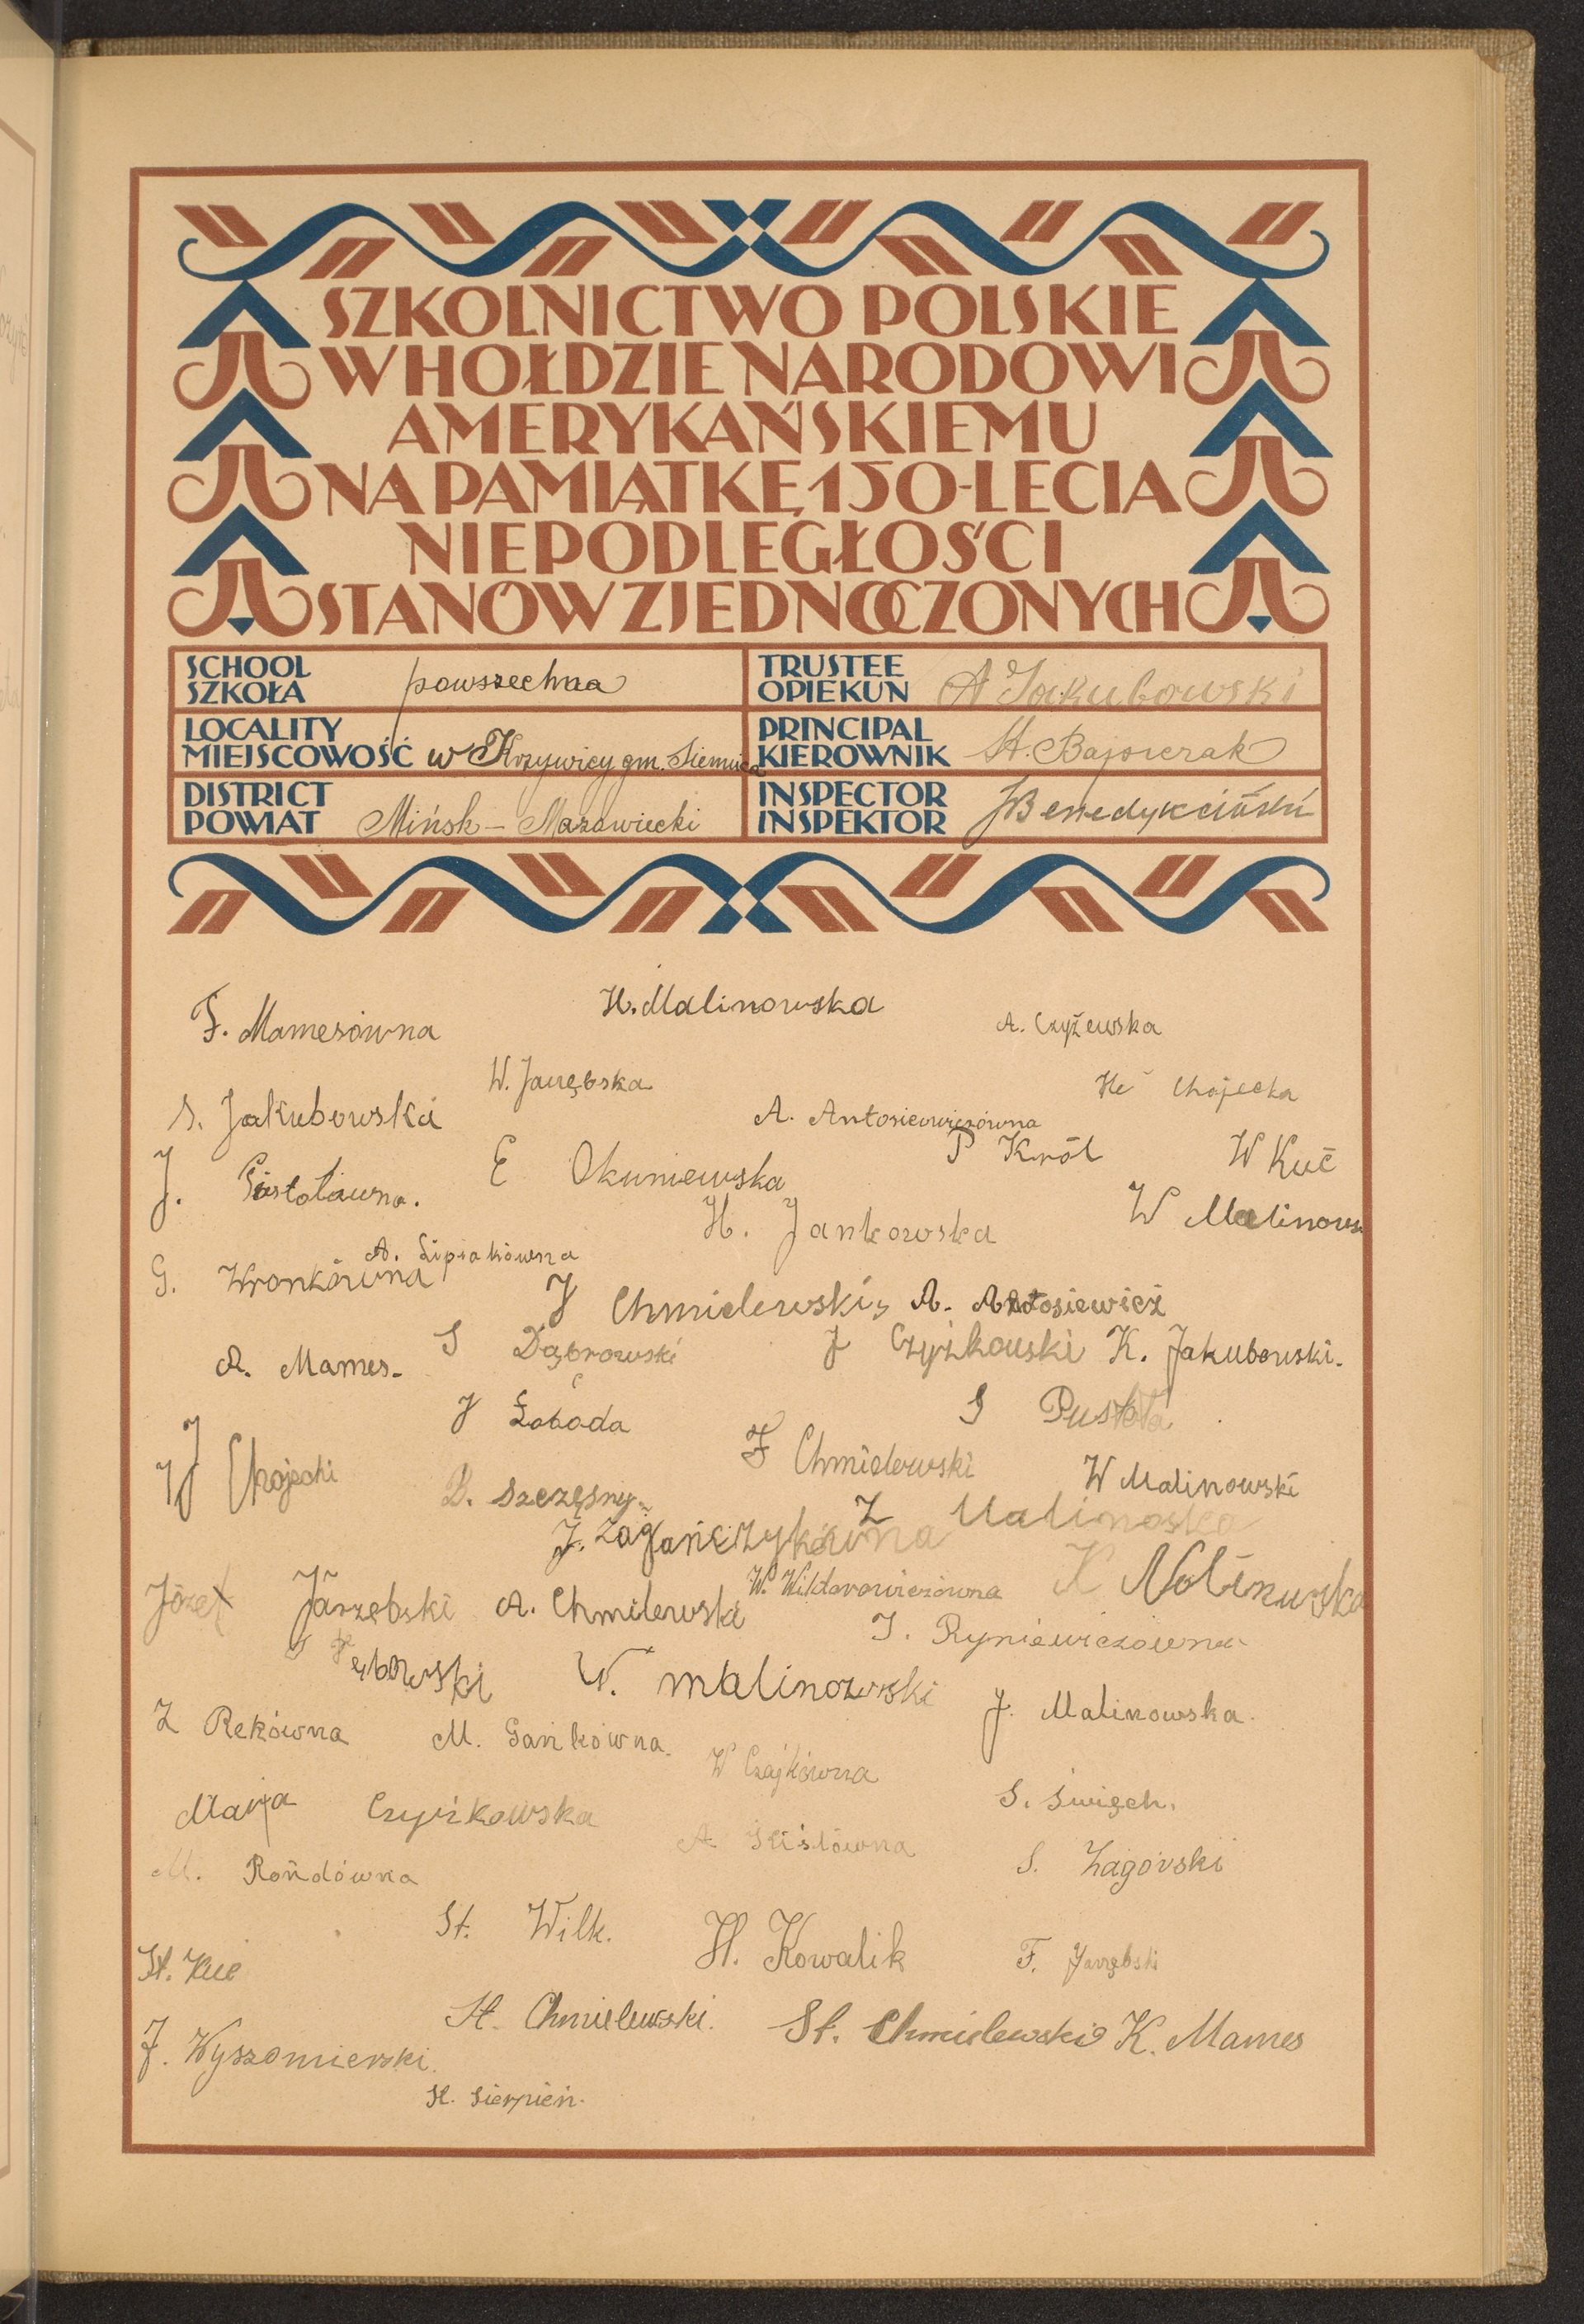 SZKOLNICTWO POLSKIE
W HOŁDZIE NARODOWI
AMERYKAŃSKIEMU
NA PAMIĄTKĘ 150-LECIA
NIEPODLEGŁOŚCI
STANÓW ZJEDNOCZONYCH
SCHOOL
SZKOŁA powszechna
TRUSTEE
OPIEKUN A Jakubowski
LOCALITY
MIEJSCOWOŚĆ w Krzywicy gm. Siennica
PRINCIPAL
KIEROWNIK St. Bajszczak
DISTRICT
POWIAT Mińsk – Mazowiecki
INSPECTOR
INSPEKTOR J Benedykciński
F. Mamesówna
H. Malinowska
A. Czyżewska
W. Jarzębska
Chojecka
S. Jakubowska
A. Antosiewiczówna
P Król
W Kuć
J.
E Okuniewska
W Malinows
H. Jankowska
A. Lipiakówna
G. Wronkówna
J Chmielewski, A. Antosiewicz
A. Mames.
S Dąbrowski
J Czyżkowski K. Jakubowski.
J Łoboda
S Pustoła
F Chmielewski
W Malinowski
J Chojecki
B. Szczęsny
J. Zagańczykówna
Z Malinoska
Józef Jarzębski A. Chmilewski
W. Wiktorowiczówna
K
J. Ryniewiczówna
W. malinowski
J. Malinowska.
Z Rekówna
M. Gańkówna.
W Czajkówna
Marja Czyżkowska
S. Święch.
A
M. Rońdówna
S. Zagórski
St. Wilk.
H. Kowalik
F. Jarzębski
St. Kuć
St. Chmielewski.
St. Chmielewski K. Mames
J. Wyszomierski.
St. Sierpień.